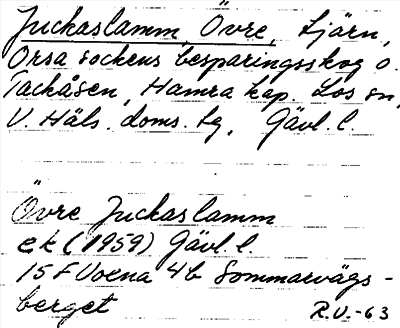 Juckaslamm, Övre, tjärn,
Orsa sockens besparingsskog o.
Tackåsen, Hamra kap. Los sn,
V. Häls. doms. tg, Gävl. l.
Övre Juckaslamm
ek (1959) Gävl. l.
15 F Voxna 4b Sommarvägs-
berget
R.V.-63